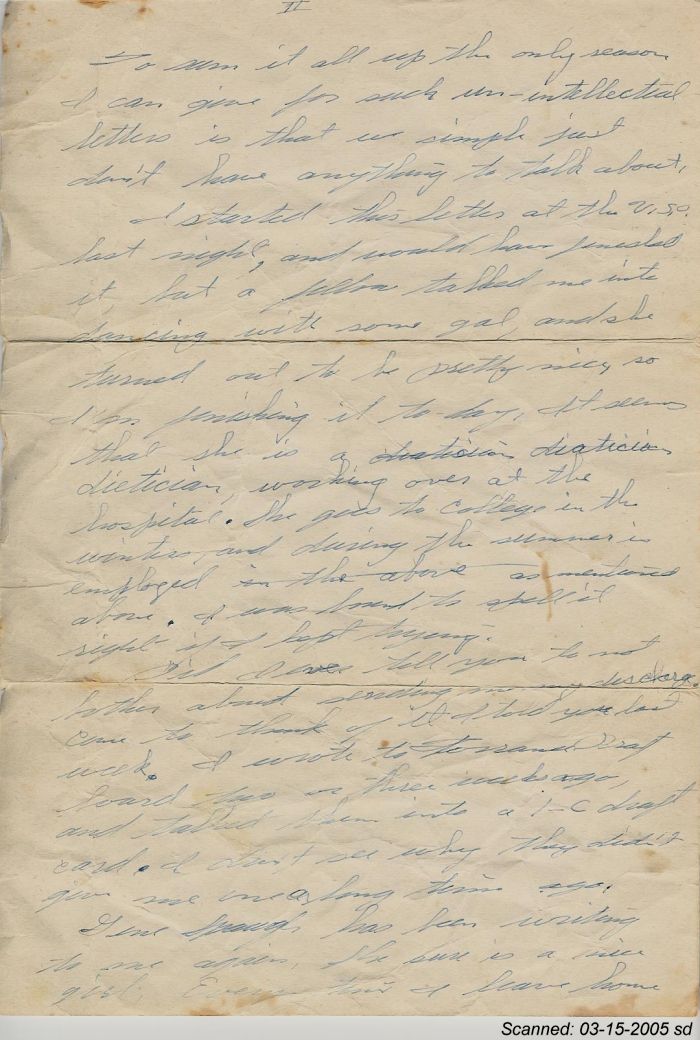 II
To sum it all up the only reason
I can give for such un-intellectual
letters is that we simple just
don't have anything to talk about.
I started this letter at the U.S.O.
last night, and would have finished
it, but a fellow talked me into
dancing with some gal, and she
turned out to be pretty nice, so
I'm finishing it to-day. It seems
that she is a diatician
dietician, working over at the
hospital. She goes to college in the
winters, and during the summer is
employed in the above as mentioned
above. I was bound to spell it
right if I kept trying.
Did I ever tell you to not
bother about sending me my discharge.
Come to think of it I told you last
week. I wrote to Torrance Draft
board two or three weeks ago,
and talked them into a 1-C draft
card. I don't see why they didn't
give me one a long time ago.
has been writing
to me again. She sure is a nice
girl. Every time I leave home
Scanned: 03-15-2005 sd